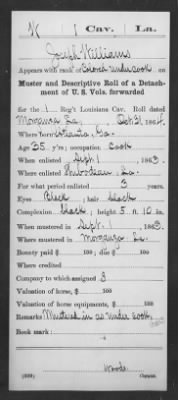 K | 1 | Cav. | La.
Joseph Williams
Appears with rank of Colored under cook on
Muster and Descriptive Roll of a Detach-
ment of U. S. Vols. forwarded
for the 1 Reg't Louisiana Cav. Roll dated
Morganza La, Oct 31, 1864.
Where born Atlanta, Ga.
Age 35 y'rs; occupation Cook
When enlisted Sept 1, 1863.
Where enlisted Thibodeau, La.
For what period enlisted 3 years.
Eyes Black; hair black
Complexion black; height 5 ft. 10 in.
When mustered in Sept. 1, 1863.
Where mustered in Morganza La.
Bounty paid $ 100; due $ 100
Where credited
Company to which assigned
Valuation of horse, $ 100
Valuation of horse equipments, $ 100
Remarks Mustered in as under cook,
Book mark:
Woods
(339) Copyist.